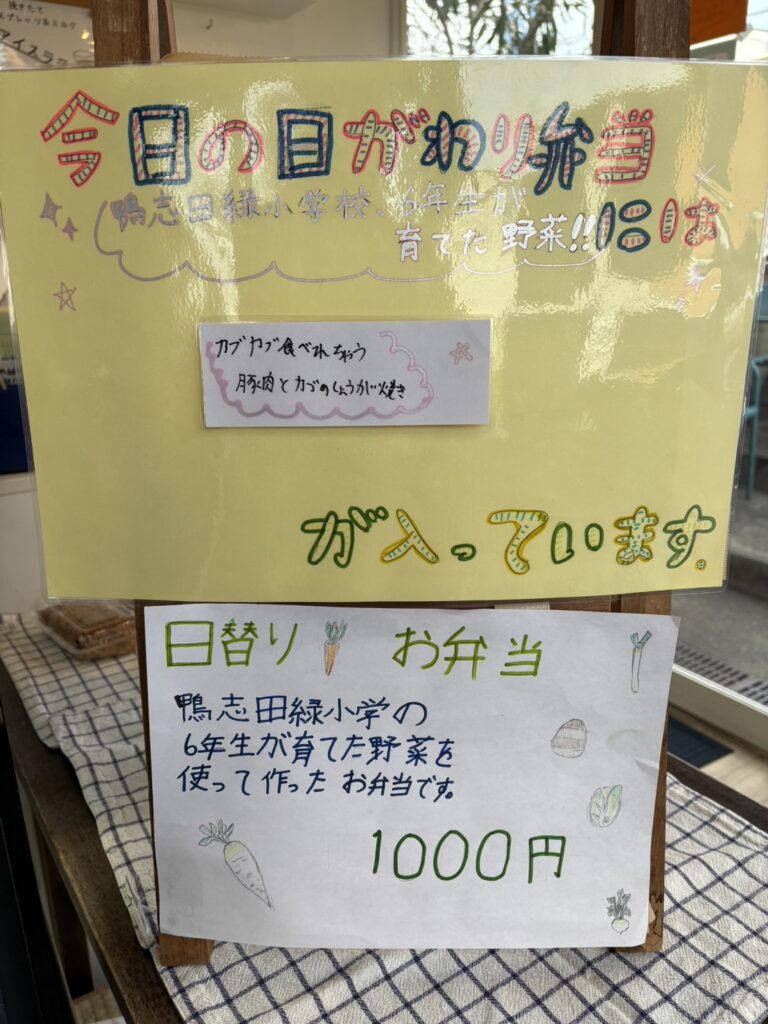 アイスラ
今日の日がわり弁当
鴨志田緑小学校、6年生が
育てた野菜!!には
カブカブ食べれちゃう
豚肉とカブのしょうが焼き
が入っています。
日替り お弁当
鴨志田緑小学の
6年生が育てた野菜を
使って作った お弁当です。
1000円